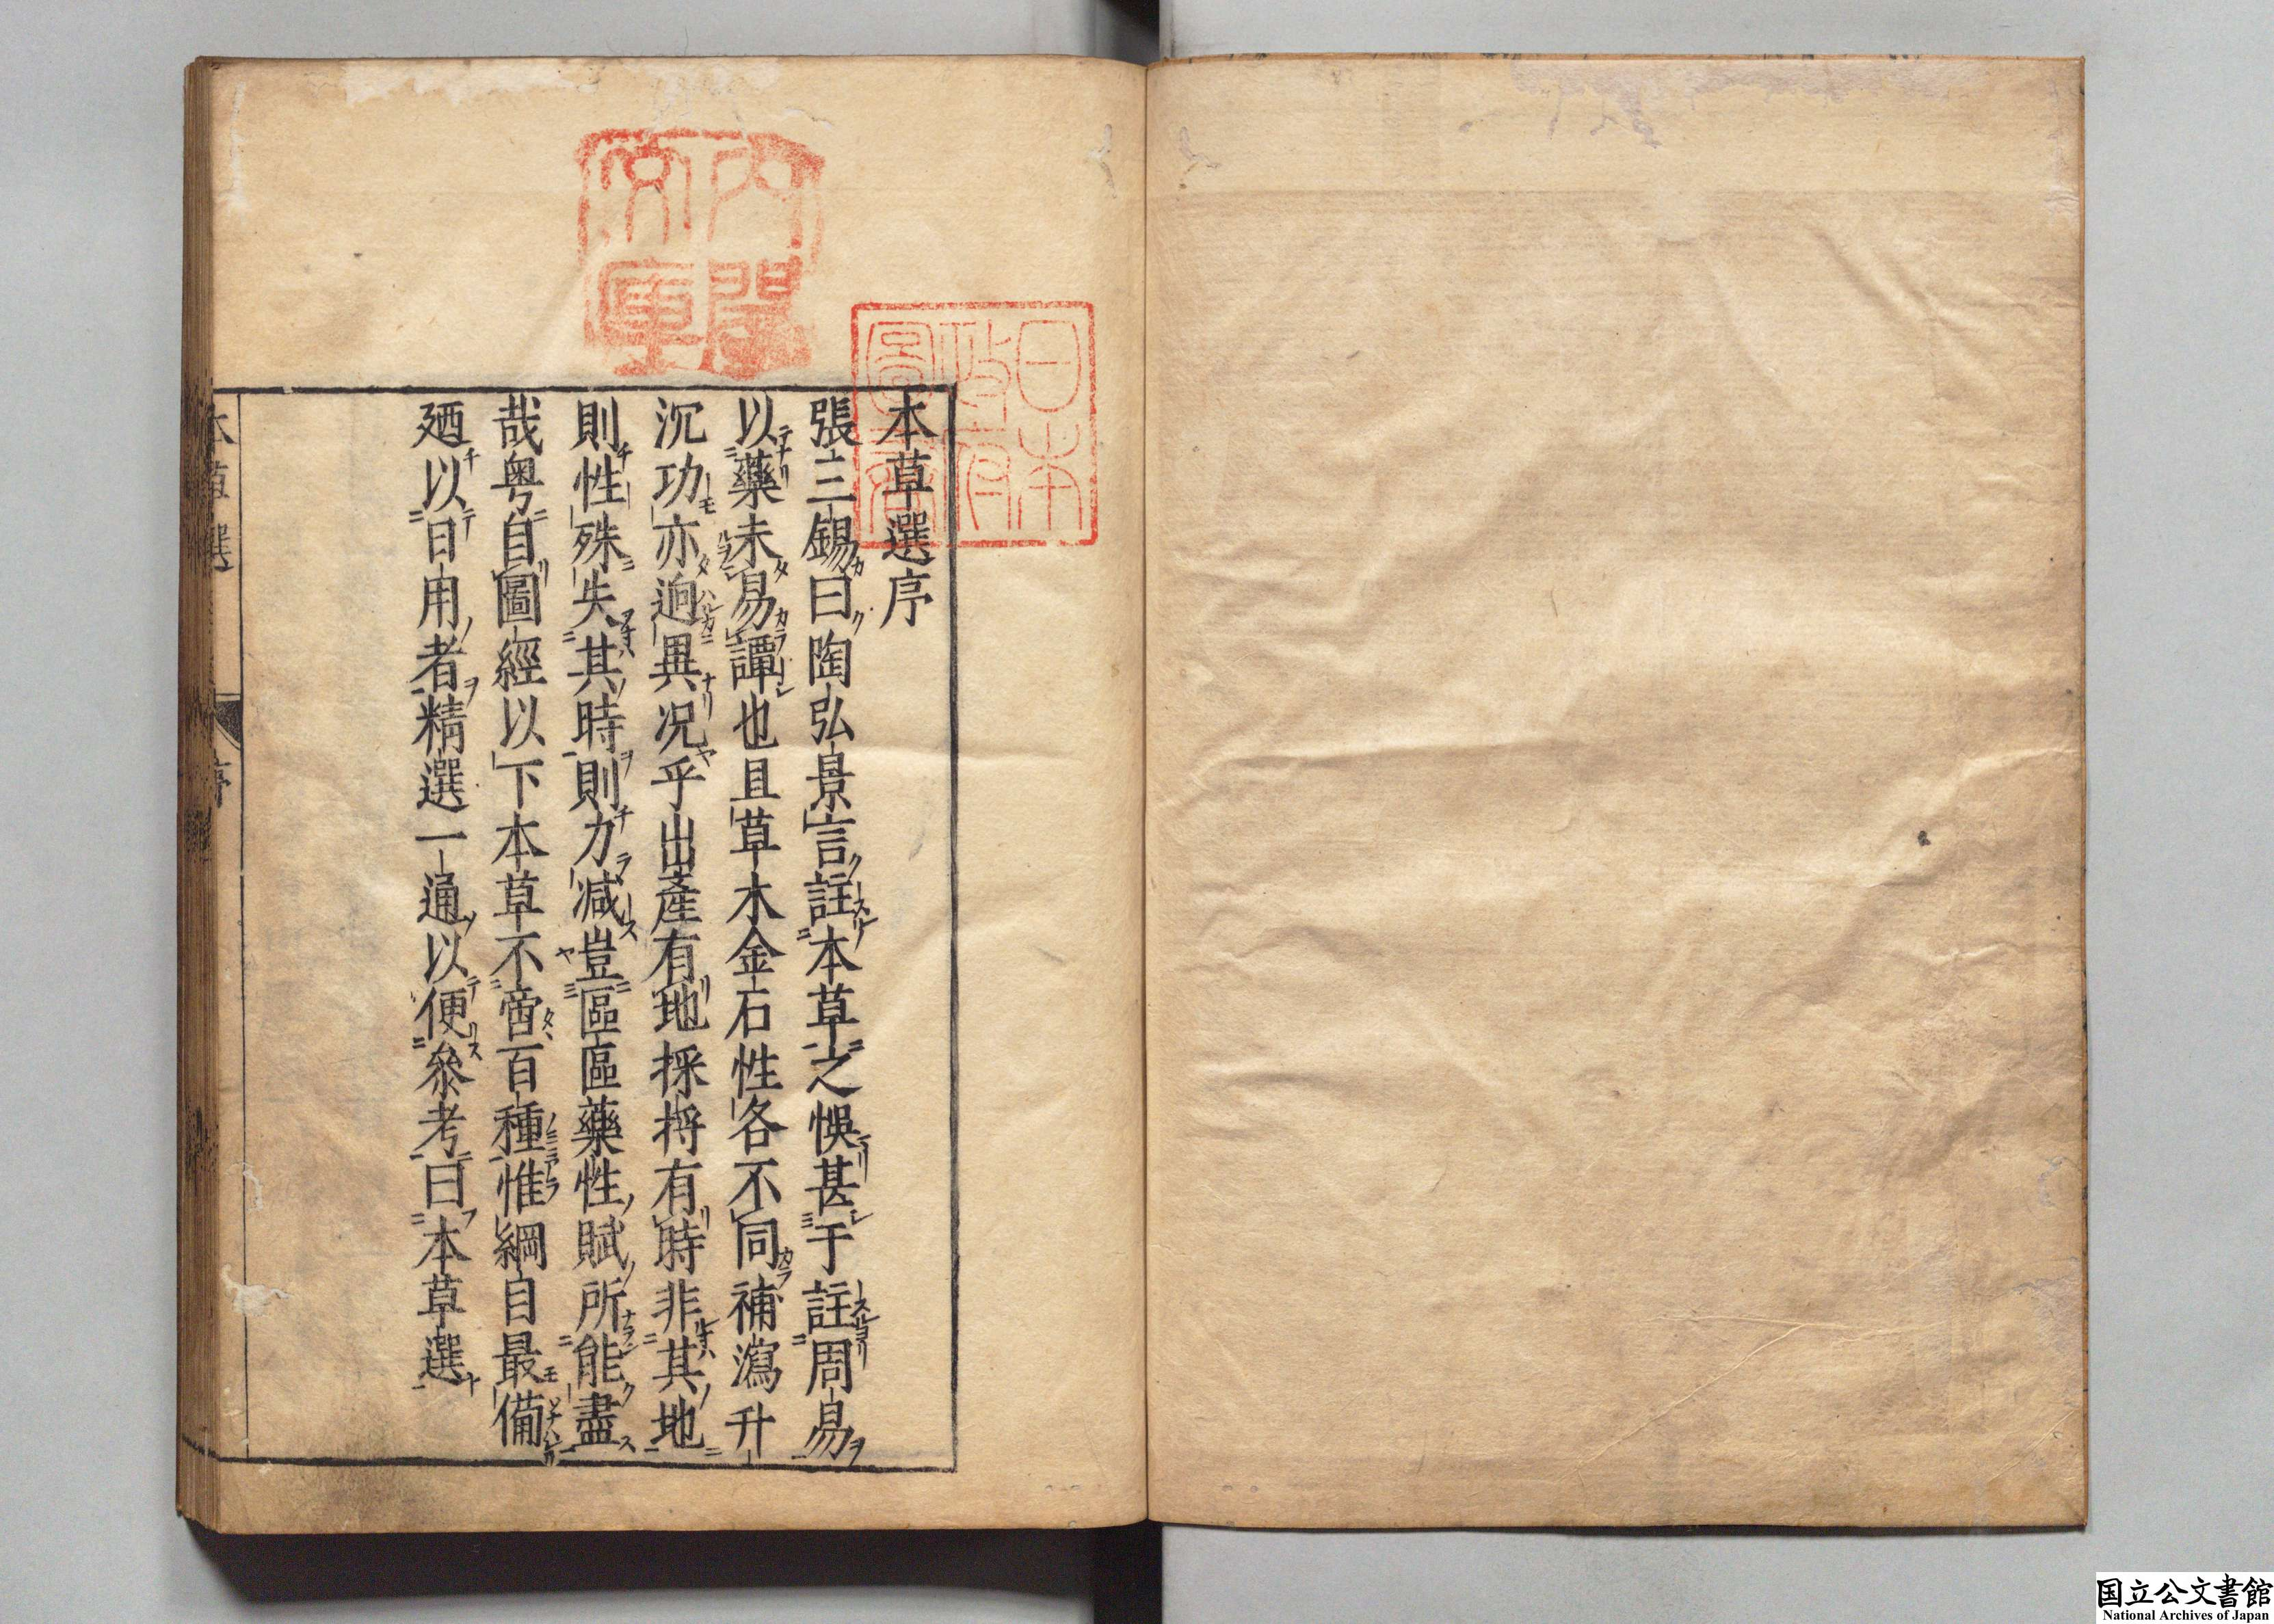 本草選序
張三錫曰陶弘景言註本草之悞甚于註周易
以藥未易譚也且草木金石性各不同補瀉升
沉功亦逈異况乎出產有地採捋有時非其地
則性殊失其時則力減豈區區藥性賦所能盡
哉粤自圖經以下本草不啻百種惟綱目最備
廼以日用者精選一通以便參考曰本草選
本草選
序
內閣文庫
日本政府圖書
国立公文書館
National Archives of Japan